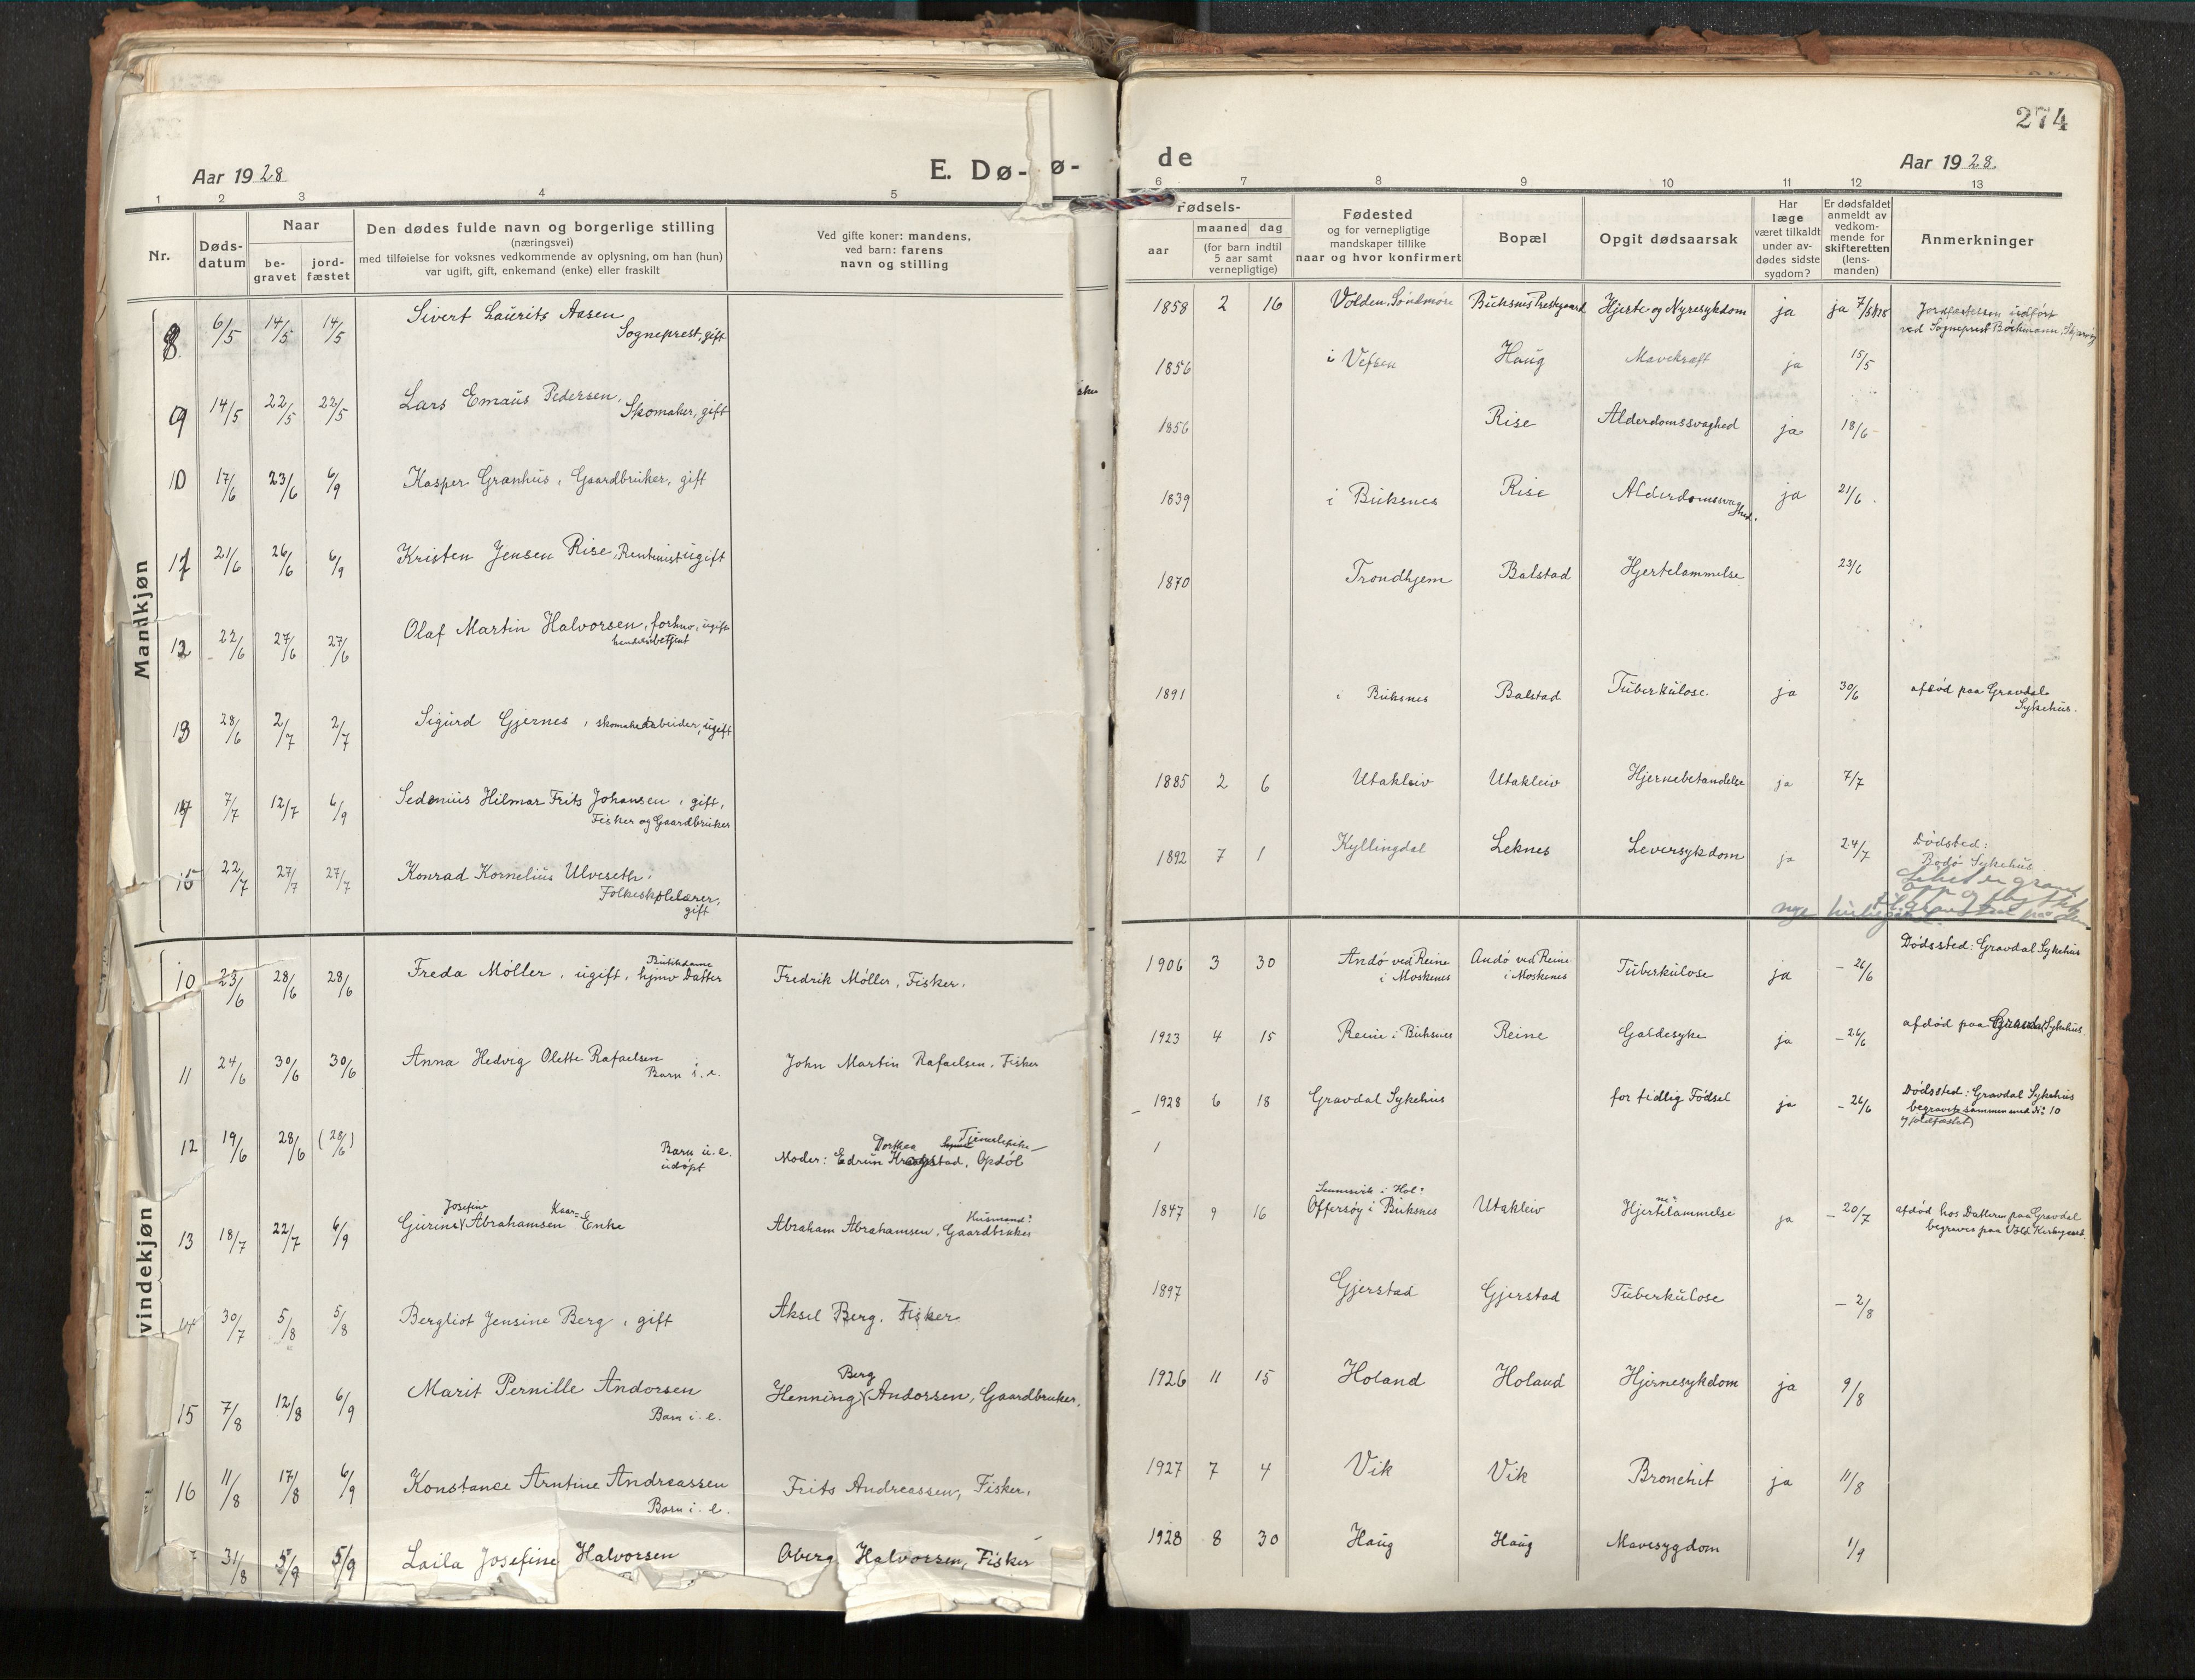 274
Aar 1928
E. Dø-
ø-
de
Aar 1928
1 2 3 4 5
6 7 8 9 10 11 12 13
Nr.
Døds-
datum
Naar
be-
gravet
jord-
fæstet
Den dødes fulde navn og borgerlige stilling
(næringsvei)
med tilføielse for voksnes vedkommende av oplysning, om han (hun)
var ugift, gift, enkemand (enke) eller fraskilt
Ved gifte koner: mandens,
ved barn: farens
navn og stilling
Fødsels-
aar
maaned dag
(for barn indtil
5 aar samt
vernepligtige)
Fødested
og for vernepligtige
mandskaper tillike
naar og hvor konfirmert
Bopæl
Opgit dødsaarsak
Har
læge
været tilkaldt
under av-
dødes sidste
sygdom?
Er dødsfaldet
anmeldt av
vedkom-
mende for
skifteretten
(lens-
manden)
Anmerkninger
Mandkjøn
8 6/5 14/5 14/5 Sivert Laurits Aasen
Sogneprest, gift
9 14/5 22/5 22/5 Lars Emaus Pedersen,
Skomaker, gift
10 17/6 23/6 6/9 Kasper Granhus, Gaardbruker, gift
11 21/6 26/6 6/9 Kristen Jensen Rise, Rentenist ugift
12 22/6 27/6 27/6 Olaf Martin Halvorsen, forhv, ugift
handelsbetjent
13 28/6 2/7 2/7 Sigurd Gjernes, skomakerarbeider, ugift
14 7/7 12/7 6/9 Sedenius Hilmar Frits Johansen, gift,
Fisker og Gaardbruker
15 22/7 27/7 27/7 Konrad Kornelius Ulveseth,
Folkeskolelærer,
gift
vindekjøn
Butikdame
10 23/6 28/6 28/6 Freda Møller, ugift, hjmv Datter Fredrik Møller, Fisker.
11 24/6 30/6 30/6 Anna Hedvig Olette Rafaelsen John Martin Rafaelsen, Fisker
Barn i. e.
12 19/6 28/6 (28/6) Barn u. e.
udøpt
Dorthea Tjenestepike
Moder: Edrun Krogstad, Opdøl
Josefine Kaar-
13 18/7 22/7 6/9 Gurine Abrahamsen Enke Abraham Abrahamsen, Gaardbruker
Husmand:
14 30/7 5/8 5/8 Bergliot Jensine Berg, gift Aksel Berg, Fisker
Berg
15 7/8 12/8 6/9 Marit Pernille Andorsen Henning Andorsen, Gaardbruker.
Barn i. e.
16 11/8 17/8 6/9 Konstance Arntine Andreassen Frits Andreassen, Fisker.
Barn i. e.
31/8 5/9 5/9 Laila Josefine Halvorsen Oberg Halvorsen, Fisker
1858 2 16 Volden, Søndmøre Buksnes Prestegaard Hjerte og Nyresykdom ja ja 7/5 1928 Jordfæstelsen udført
ved Sogneprest Bøckmann,
1856 i Vefsen Haug Mavekræft ja 15/5
1856 Rise Alderdomssvaghed ja 18/6
1839 i Buksnes Rise Alderdomssvaghed. ja 21/6
1870 Trondhjem Balstad Hjertelammelse 23/6
1891 i Buksnes Balstad Tuberkulose. ja 30/6 afdød paa Gravdal
Sykehus.
1885 2 6 Utakleiv Utakleiv Hjernebetændelse ja 7/7
1892 7 1 Kyllingdal Leknes Leversykdom ja 24/7 Dødsted:
Bodø Sykehus.
1906 3 30 Andø ved Reine Andø ved Reine Tuberkulose ja - 26/6 Dødssted: Gravdal Sykehus
i Moskenes i Moskenes
1923 4 15 Reine i Buksnes Reine Galdesyke ja - 26/6 afdød paa Gravdal Sykehus
1928 6 18 Gravdal Sykehus for tidlig Fødsel ja - 26/6 Dødssted: Gravdal Sykehus
begravet sammen med No 10
1847 9 16 Offersøy i Buksnes Utakleiv Hjertelammelse ja - 20/7 afdød hos Datteren paa Gravdal
begraves paa Vold Kirkegaard.
1897 Gjerstad Gjerstad Tuberkulose - 2/8
1926 11 15 Holand Holand Hjernesykdom ja 9/8
1927 7 4 Vik Vik Bronchit ja 11/8
1928 8 30 Haug Haug Mavesygdom 1/9